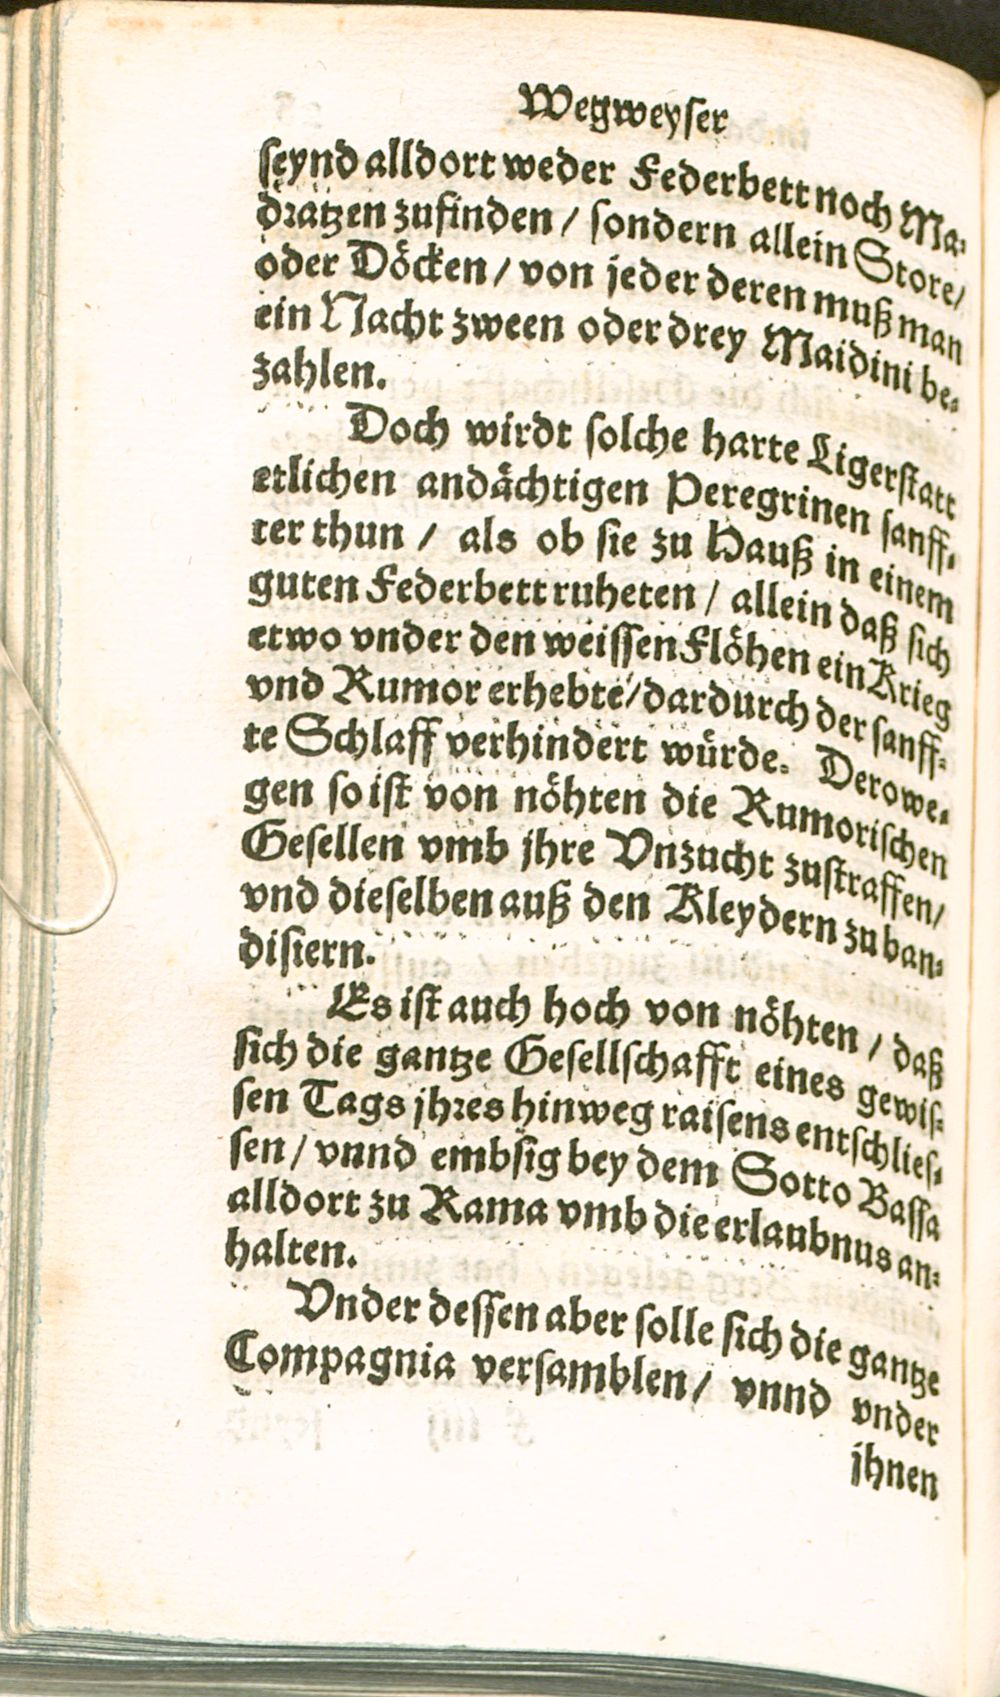 Wegweyser
seynd alldort weder Federbett noch Ma-
dratzen zufinden / sondern allein Store/
oder Döcken / von jeder deren muß man
ein Nacht zween oder drey Maidini be-
zahlen.
Doch wirdt solche harte Ligerstatt
etlichen andächtigen Peregrinen sanff-
ter thun / als ob sie zu Hauß in einem
guten Federbett ruheten / allein daß sich
etwo vnder den weissen Flöhen ein Krieg
vnd Rumor erhebte/dardurch der sanff-
te Schlaff verhindert würde. Derowe-
gen so ist von nöhten die Rumorischen
Gesellen vmb jhre Vnzucht zustraffen/
vnd dieselben auß den Kleydern zu ban-
disiern.
Es ist auch hoch von nöhten / daß
sich die gantze Gesellschafft eines gewis-
sen Tags jhres hinweg raisens entschlies-
sen / vnnd embsig bey dem Sotto Bassa
alldort zu Rama vmb die erlaubnus an-
halten.
Vnder dessen aber solle sich die gantze
Compagnia versamblen/ vnnd vnder
jhnen